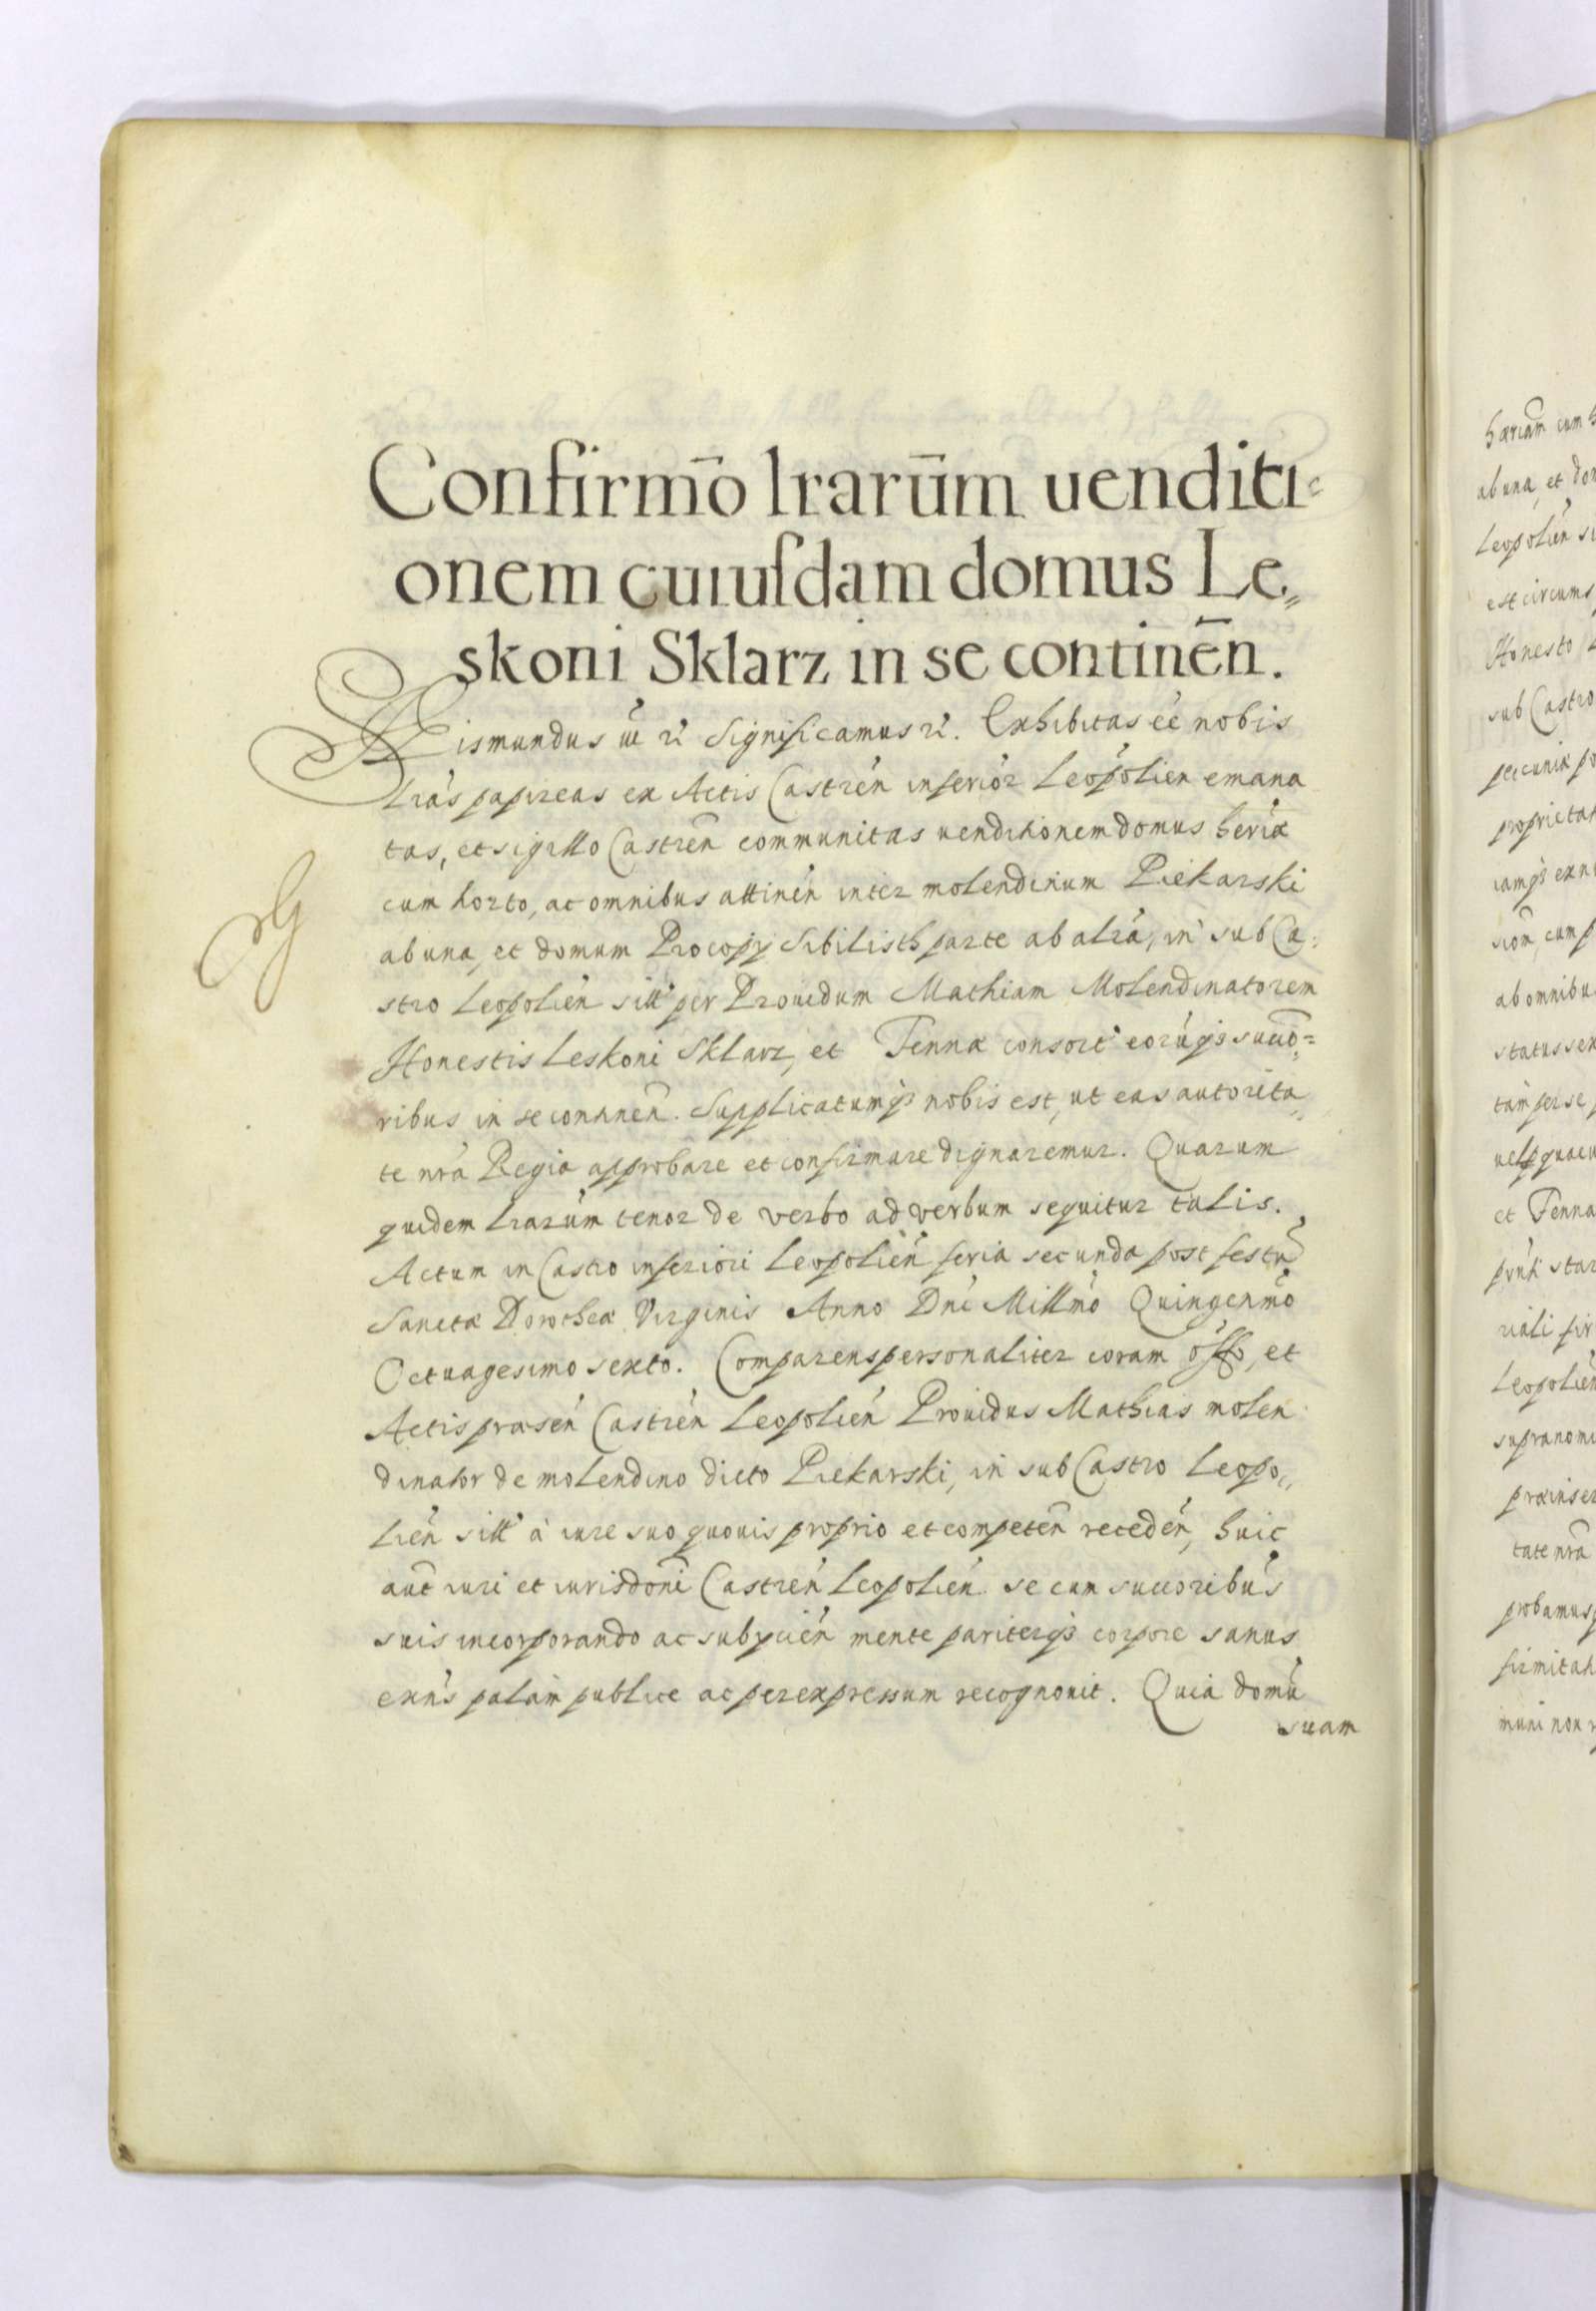 Confirmō lrarūm uenditi-
onem cuiuſdam domus Le„
skoni Sklarz in se continēn.
Sigismundus iii &c. Significamus &c. Exhibitas eē nobis
lrās papireas ex Actis Castrēn inferiōr Leopolien emana
tas, et sigillo Castrēn communitas uenditionem domus heriæ
cum horto, ac omnibus attinēn inter molendinum Piekarski
ab una, et domum Procopij Sibilisth parte ab altrā, in sub Ca-
stro Leopoliēn sitt' per Prouidum Mathiam Molendinatorem
Honestis Leskoni Sklarz, et Fennæ consort' eorūqꝫ succō=
ribus in se continēn. Supplicatumqꝫ nobis est, ut eas autorita„
te nrā Regia approbare et confirmare dignaremur. Quarum
quidem lrarūm tenor de verbo ad verbum sequitur talis.
Actum in Castro inferiori Leopoliēn feria secunda post festū
Sanctæ Dorotheæ Virginis Anno Dnī Millmō Quingenmō
Octuagesimo sexto. Comparens personaliter coram offo, et
Actis præsēn Castrēn Leopoliēn Prouidus Mathias molen
dinator de molendino dicto Piekarski, in sub Castro Leopo„
liēn sitt' à iure suo quouis proprio et competēn recedēn, huic
aūt iuri et iurisdonī Castrēn Leopoliēn se cum succoribūs
suis incorporando ac subijciēn mente pariterqꝫ corpore sanus
exn̄s palàm publice ac per expressum recognouit. Quia domū
suam
hæriam cum
ab una, et
Leopoliēn
est circums
Honesto
sub Castro
pecuniæ
proprietat
iamqꝫ
cum
ab omnibu
status
tàm per se
et Fenna
Leopoliēn
supranomi
præinser
tate nrā
probamus
firmitat
non